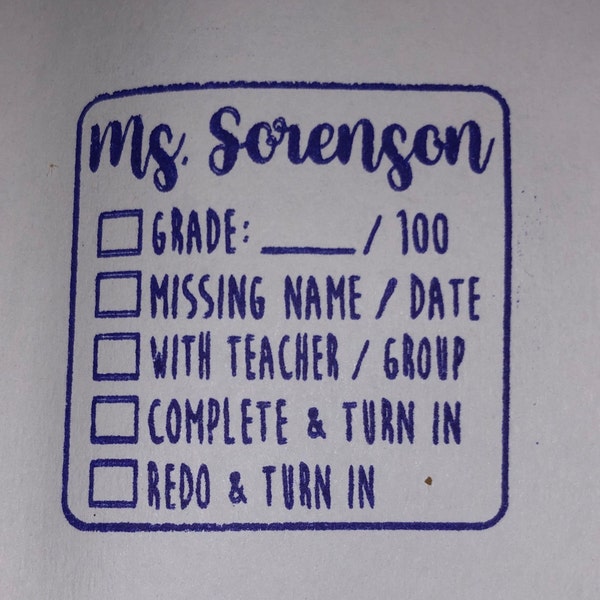 Ms. Sorenson
GRADE: _____ / 100
MISSING NAME / DATE
WITH TEACHER / GROUP
COMPLETE & TURN IN
REDO & TURN IN